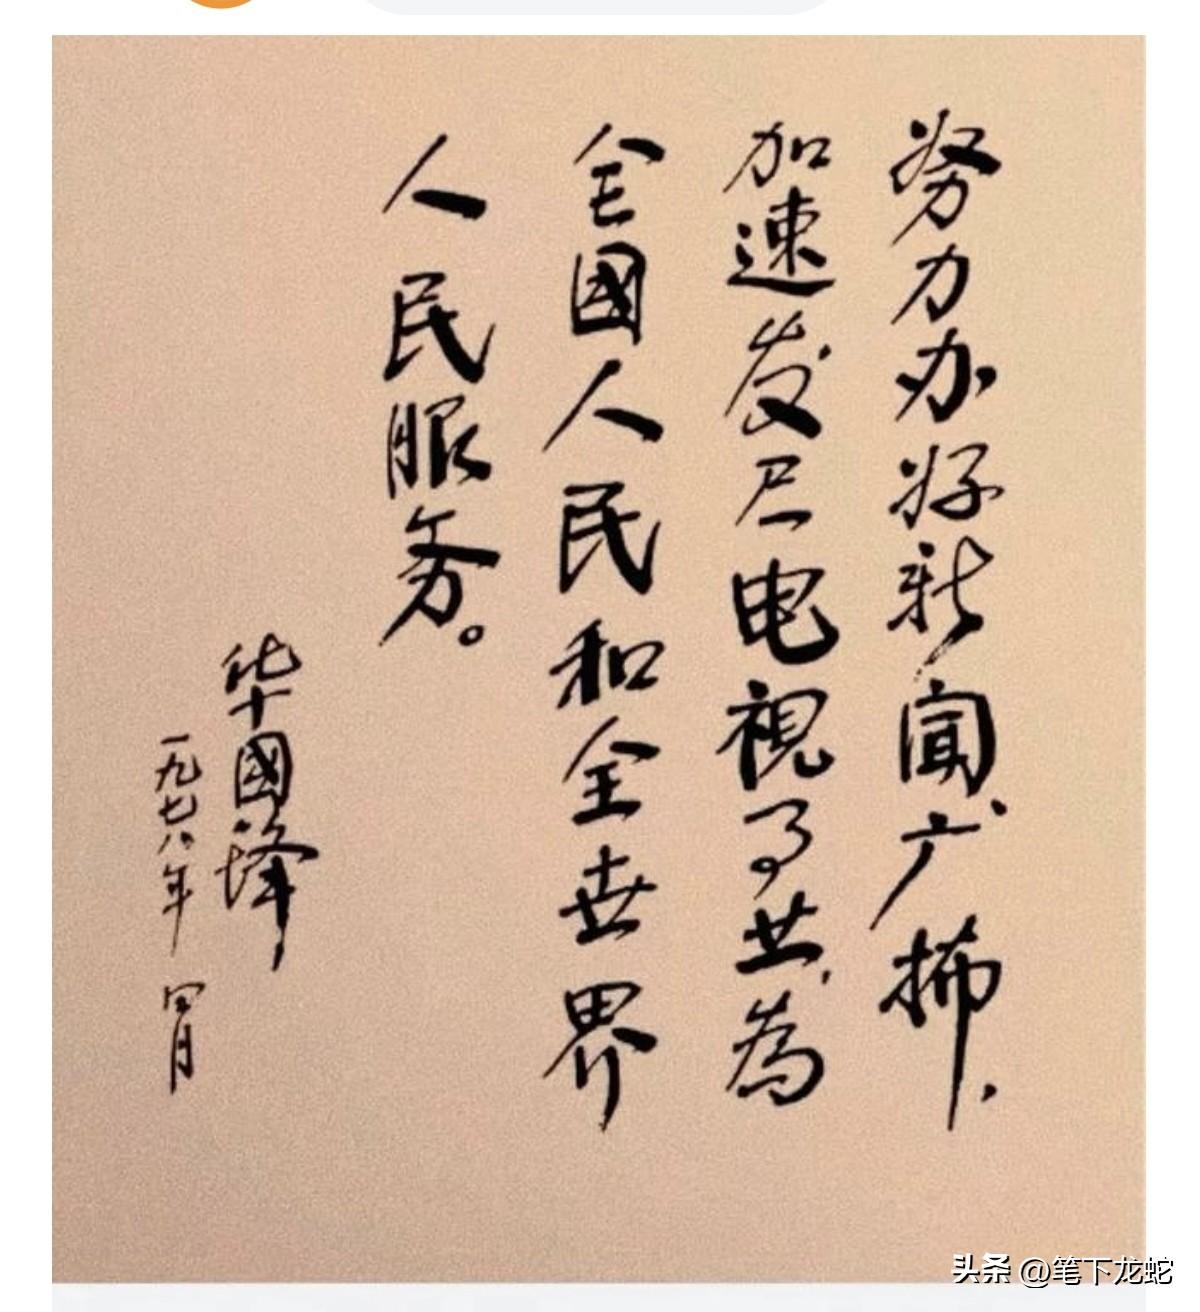 努力办好新闻、广播，
加速发展电視事业，為
全國人民和全世界
人民服务。
华國锋
一九七八年四月
头条 @笔下龙蛇